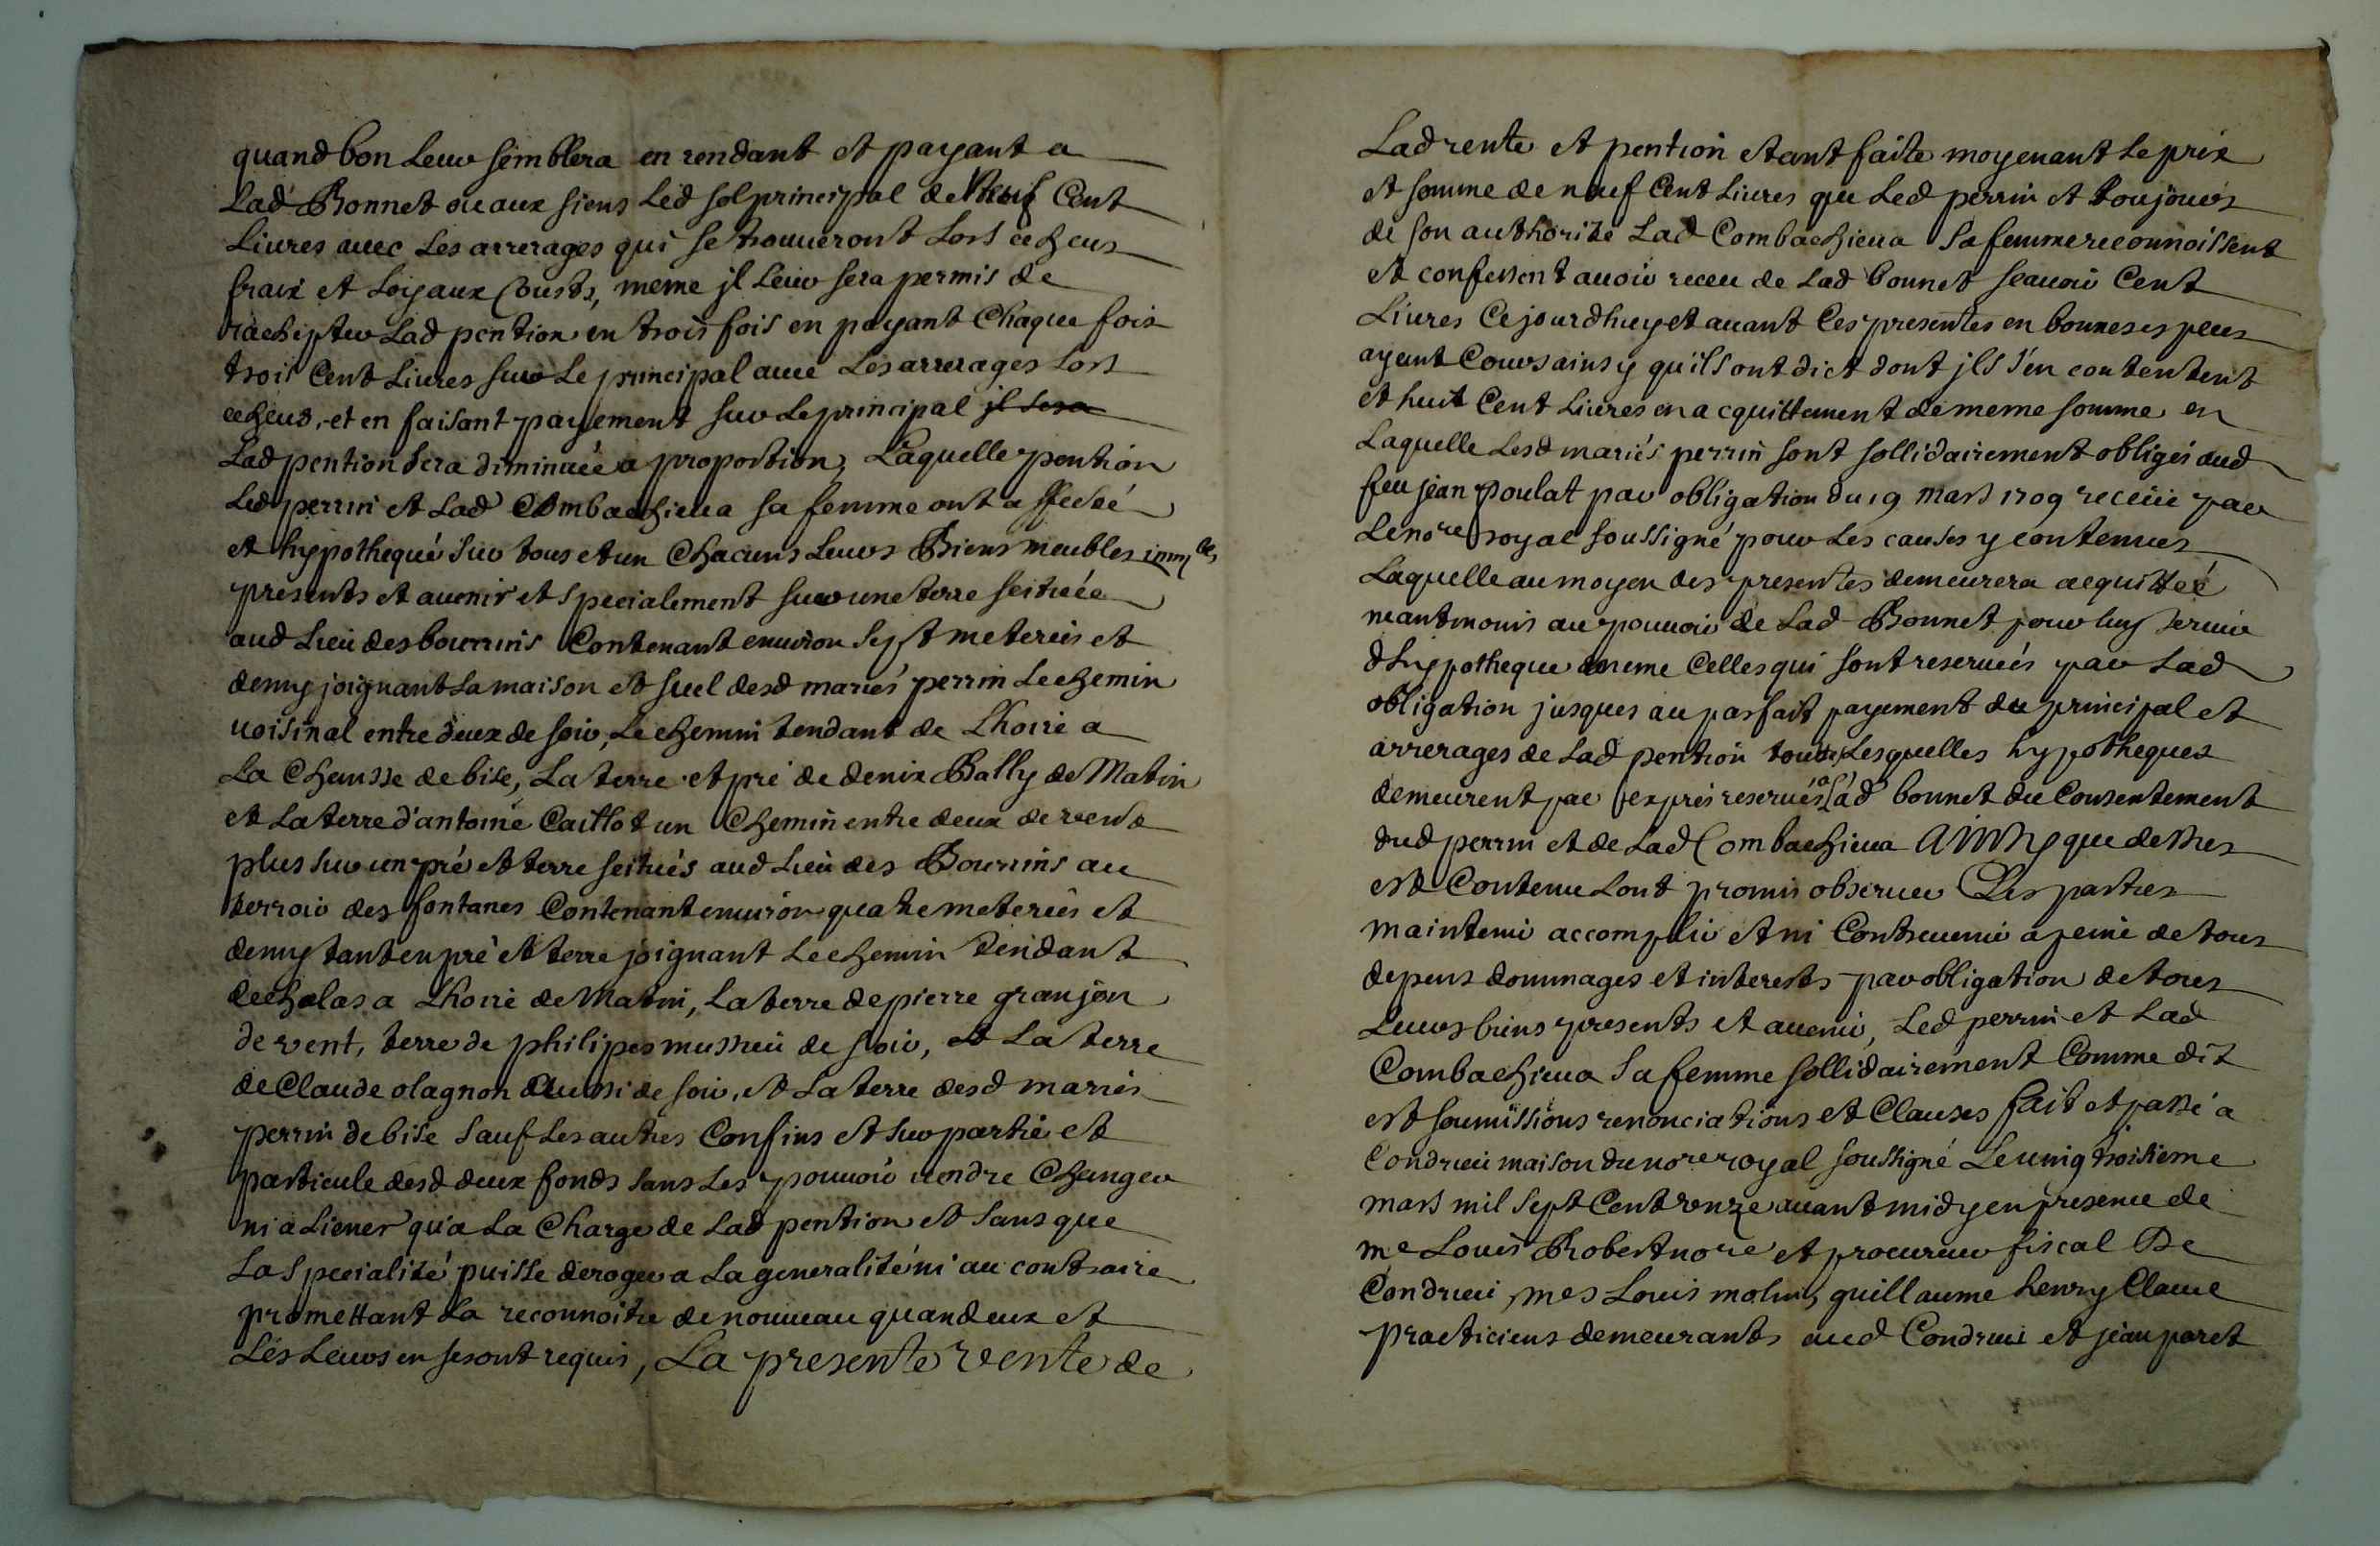 quand bon leur semblera en rendant et payant a
Lad Bonnet ou aux siens Led sol principal de Neuf Cent
Liures auec Les arrerages qui se trouueront Lors écheus
fraix et Loyaux Cousts, meme jl Leur sera permis de
rachepter Lad pention en trois fois en payant Chaque fois
trois Cent Liures sur Le principal auec Les arrerages Lors
echeus, et en faisant payement sur Le principal jl sera
Lad pention sera diminuée a proportion, Laquelle pention
Led perrin et Lad Combachieua sa femme ont affecteé
et hypothequé sur tous et un Chacuns Leurs Biens meubles imm les
presents et auenir et specialement sur une terre scituée
aud Lieu des bourrins Contenant enuiron sept meterées et
demy joignant La maison et suel desd mariés perrin Le chemin
uoisinal entre deux de soir, Le chemin tendant de Lhoire a
La Chausse de bise, La terre et pré de denix Bally de Matin
et La terre d'antoine Caillot un Chemin entre deux de vent
plus sur un pré et terre scitués aud Lieu des Bourrins au
terroir des fontanes Contenant enuiron quatre meterées et
demy tant en pré et terre joignant Le chemin tendant
de chalas a Lhoire de Matin, La terre de pierre granjon
de vent, terre de philipes mussieu de soir, et La terre
de Claude olagnon aussi de soir, et La terre desd mariés
perrin de bise sauf Les autres Confins et sur partie et
particule desd deux fonds sans Les pouuoir uendre Changer
ni aliener qu'a La Charge de Lad pention et sans que
La specialité puisse deroger a La generalité ni au contraire
promettant La reconnoitre de nouueau quand eux et
Les Leurs en seront requis, La presente vente de
Lad rente et pention etant faite moyenant Le prix
et somme de neuf Cent Liures que Led perrin et toujours
de son authorité Lad Combachieua sa femme reconnoissent
et confessent auoir receu de Lad bonnet scauoir Cent
Liures Cejourdhuy et auant Ces presentes en bonnes especes
ayant Cours ainsy qu'ils ont dict dont jls s'en contentent
et huit Cent Liures en acquittement de meme somme en
Laquelle Lesd mariés perrin sont sollidairement obligés aud
feu jean poulat par obligation du 19 mars 1709 receüe par
Le nore royal soussigné pour Les causes y contenues
Laquelle au moyen des presentes demeurera acquitteé
neantmoins au pouuoir de Lad Bonnet pour luy seruir
d hypotheque meme Celles qui sont reserueés par Lad
obligation jusques au parfait payement du principal et
arrerages de Lad pention toutes Lesquelles hypotheques
demeurent par exprés reserueés a Lad bonnet du Consentement
dud perrin et de Lad Combachieua Ainsy que dessus
est Contenu Lont promis obseruer Les parties
maintenir accomplir et ni Contreuenir a peine de tous
depens dommages et interests par obligation de tous
Leurs biens presents et auenir, Led perrin et Lad
Combachieua sa femme sollidairement Comme dit
est soumissions renonciations et Clauses fait et passé a
Condrieu maison du nore royal soussigné Le uing troisieme
mars mil sept Cent onze auant midy en presence de
me Louis Robert nore et procureur fiscal De
Condrieu, mes Louis molin, guillaume henry Claue
practiciens demeurants aud Condrieu et jean paret